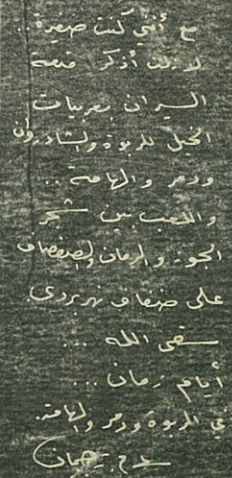 مع أنني كنت صغيرة..
لا زلت أذكر متعة
السيران بعربيات
الخيل للربوة والشادروان
ودمر والهامة..
واللعب بين شجر
الجوز والرمان والصفصاف
على ضفاف نهر بردى.
سقى الله ...
أيام زمان ...
في الربوة ودمر والهامة.